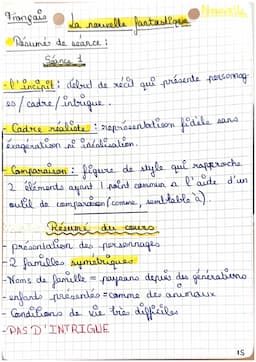 Français
La nouvelle fantastique
Résumé de séance :
Séance 1
- L'incipit : début de récit qui présente personnag-
es / cadre / intrigue.
- Cadre réaliste : représentation fidèle sans
exagération ni idéalisation.
- Comparaison : figure de style qui rapproche
2 éléments ayant 1 point commun a l'aide d'un
outil de comparaison (comme, semblable à).
Résumé du cours
- présentation des personnages
- 2 familles symétriques
- Noms de famille = paysans depuis des générations
- enfants présentés = comme des animaux
- Conditions de vie très difficiles
- PAS D'INTRIGUE
15